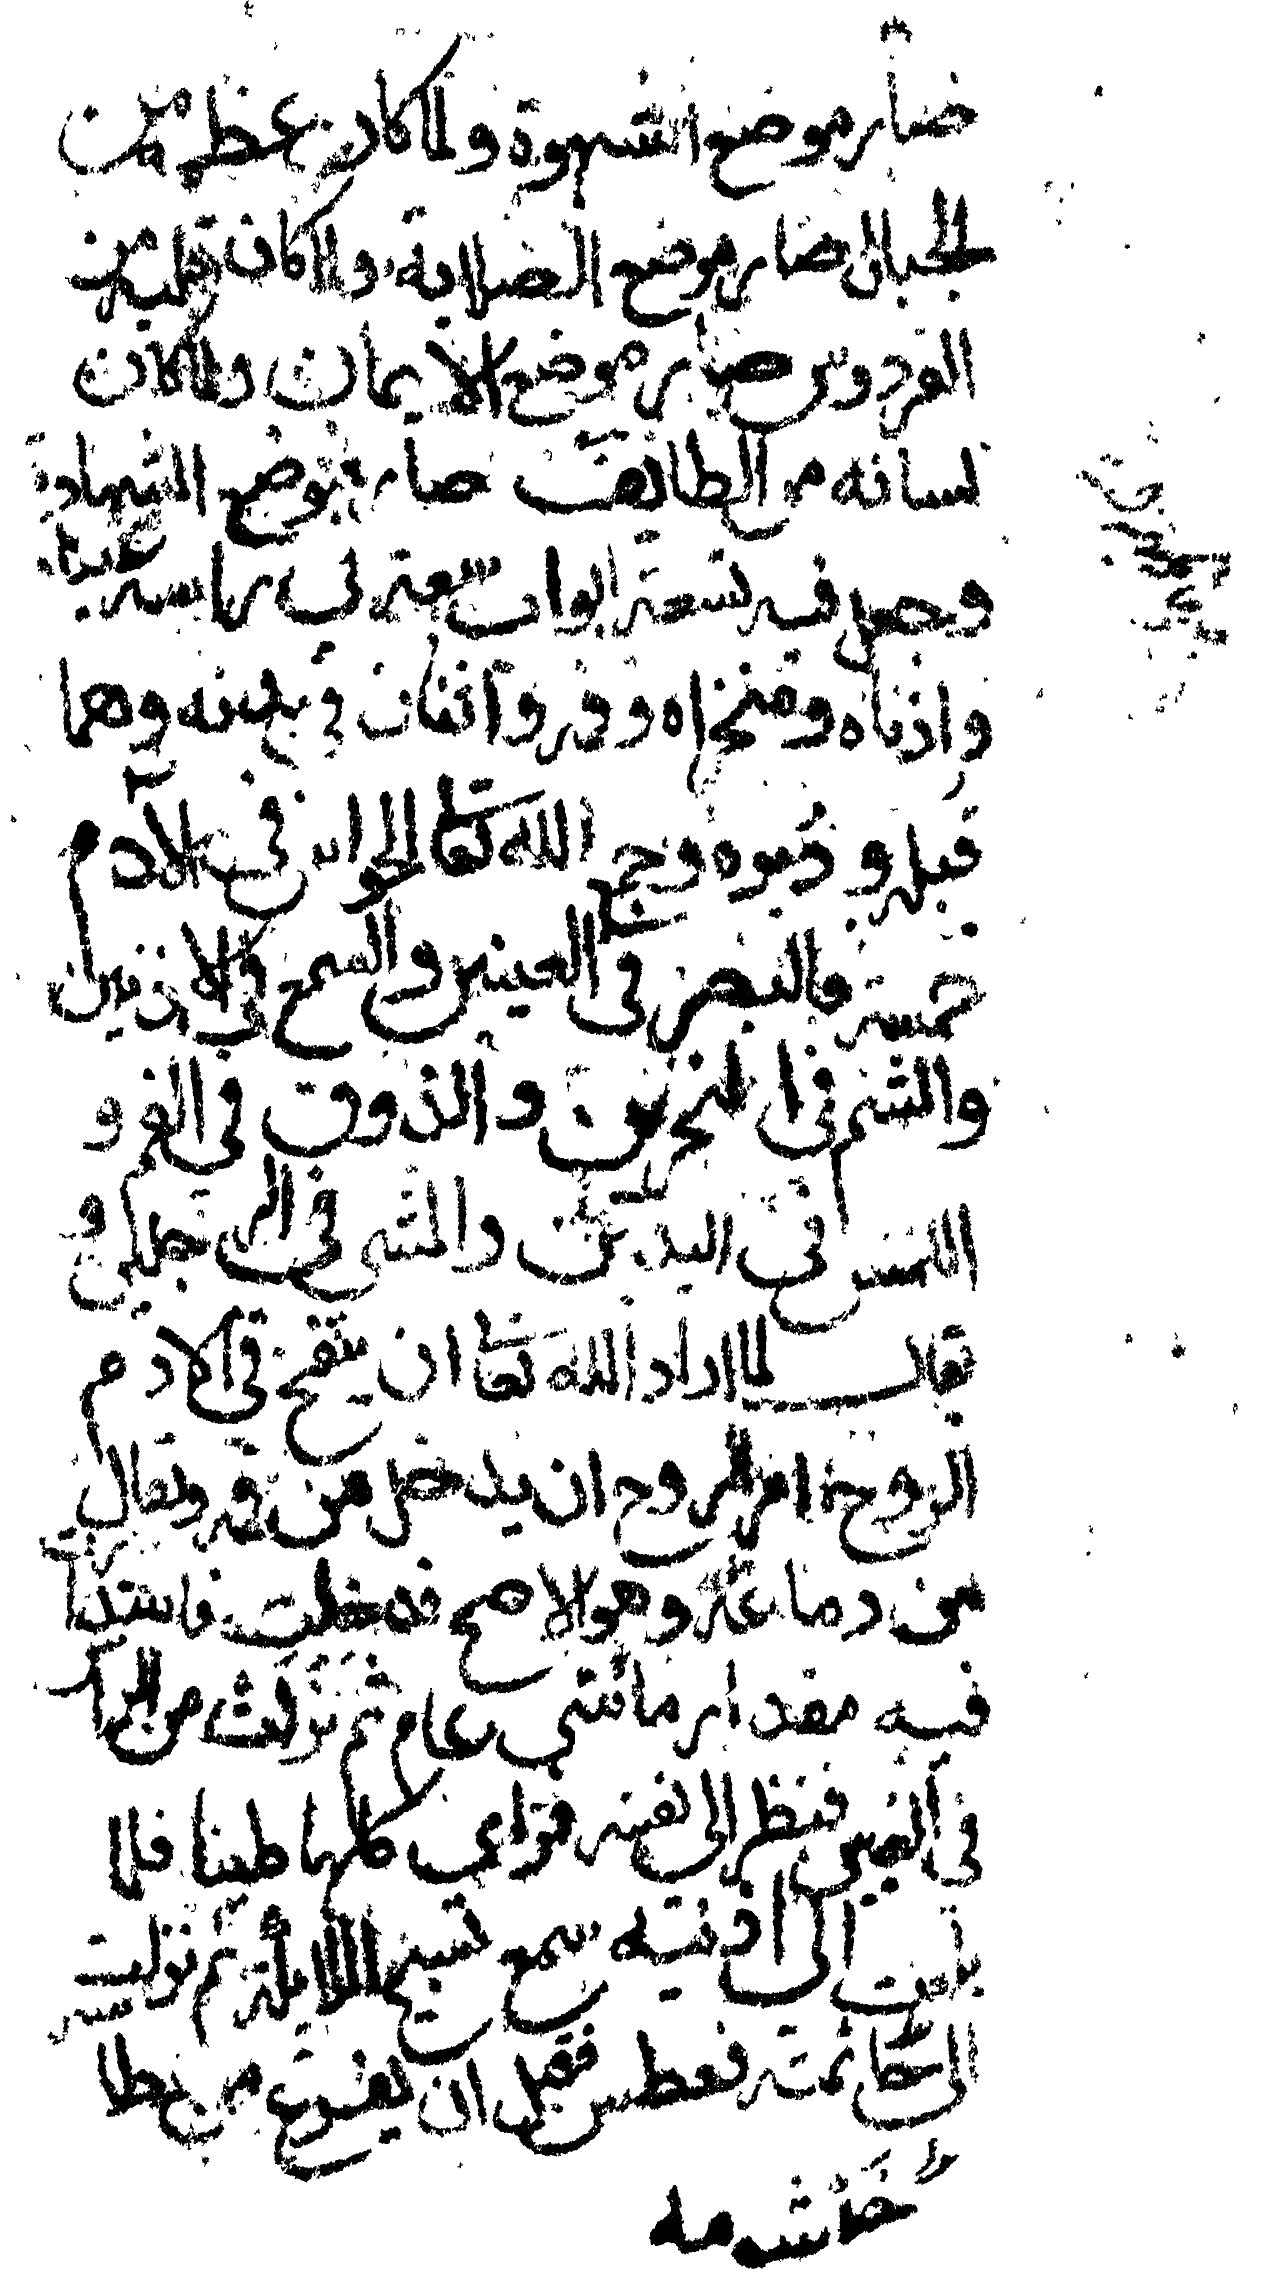 صار موضع الشهوة ولما كان عظمه من
الجبال صار موضع الصلابة ولما كان قلبه من
الفردوس صار موضع الايمان ولما كان
لسانه من الطائف صار موضع الشهادة
وجعل فيه تسعة ابواب سبعة في راسه عيناه
واذناه ومنخراه وفمه واثنان في بدنه وهما
قبله ودبره وجمع الله تعا الحواس في الادم
خمسة فالبصر في العينين والسمع في الاذنين
والشم في المنخرين والذوق في الفم و
اللمس في اليدين والمشي في الرجلين و
يقال لما اراد الله تعا ان ينفخ في الادم
الروح امر الروح ان يدخل من فمه ويقال
من دماغه وهو الاصح فدخلت فاستدارت
فيه مقدار مائتي عام ثم نزلت من الراس
في العين فنظر الى نفسه فراى كلها طينا فلما
بلغت الى اذنيه سمع تسبيح الملائكة ثم نزلت
الى خاشمته فعطس فقبل ان يفرغ من عطا
خاشمه